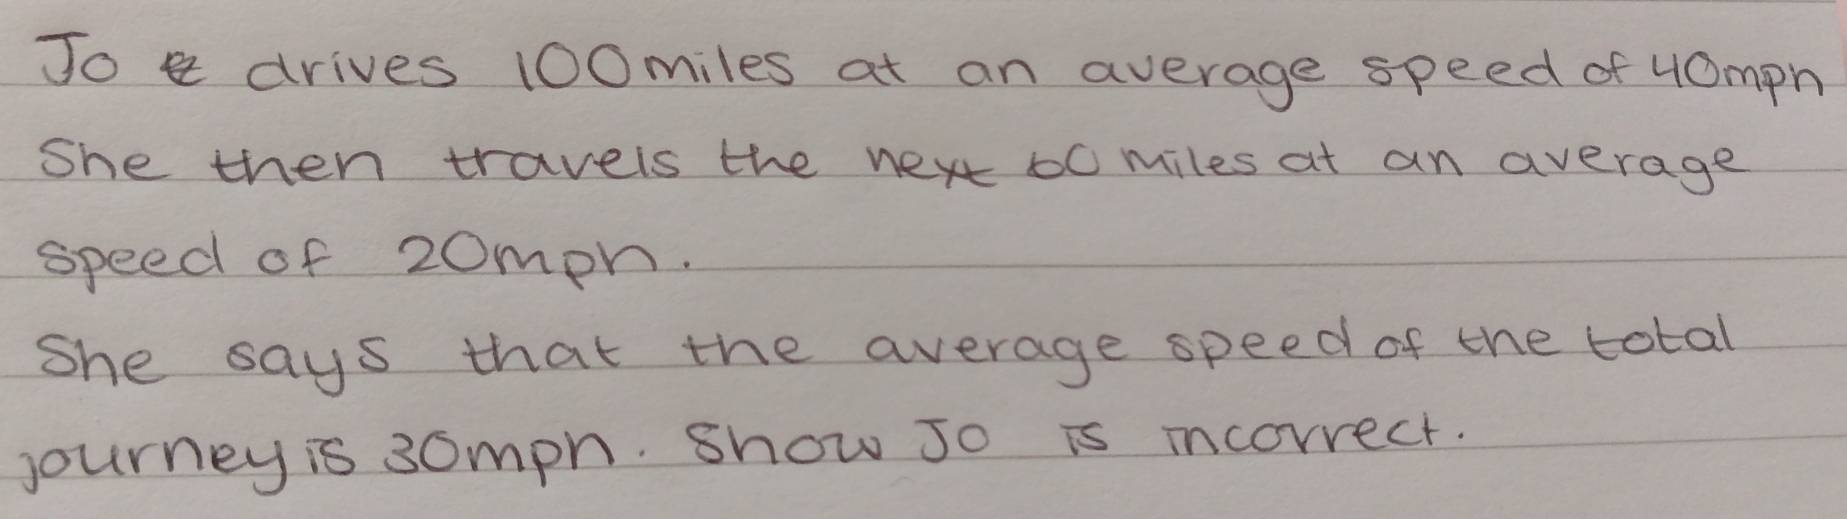 Jo drives 100 miles at an average speed of 40mph
She then travels the next 60 miles at an average
speed of 20mph.
She says that the average speed of the total
journey is 30mph. Show Jo is incorrect.